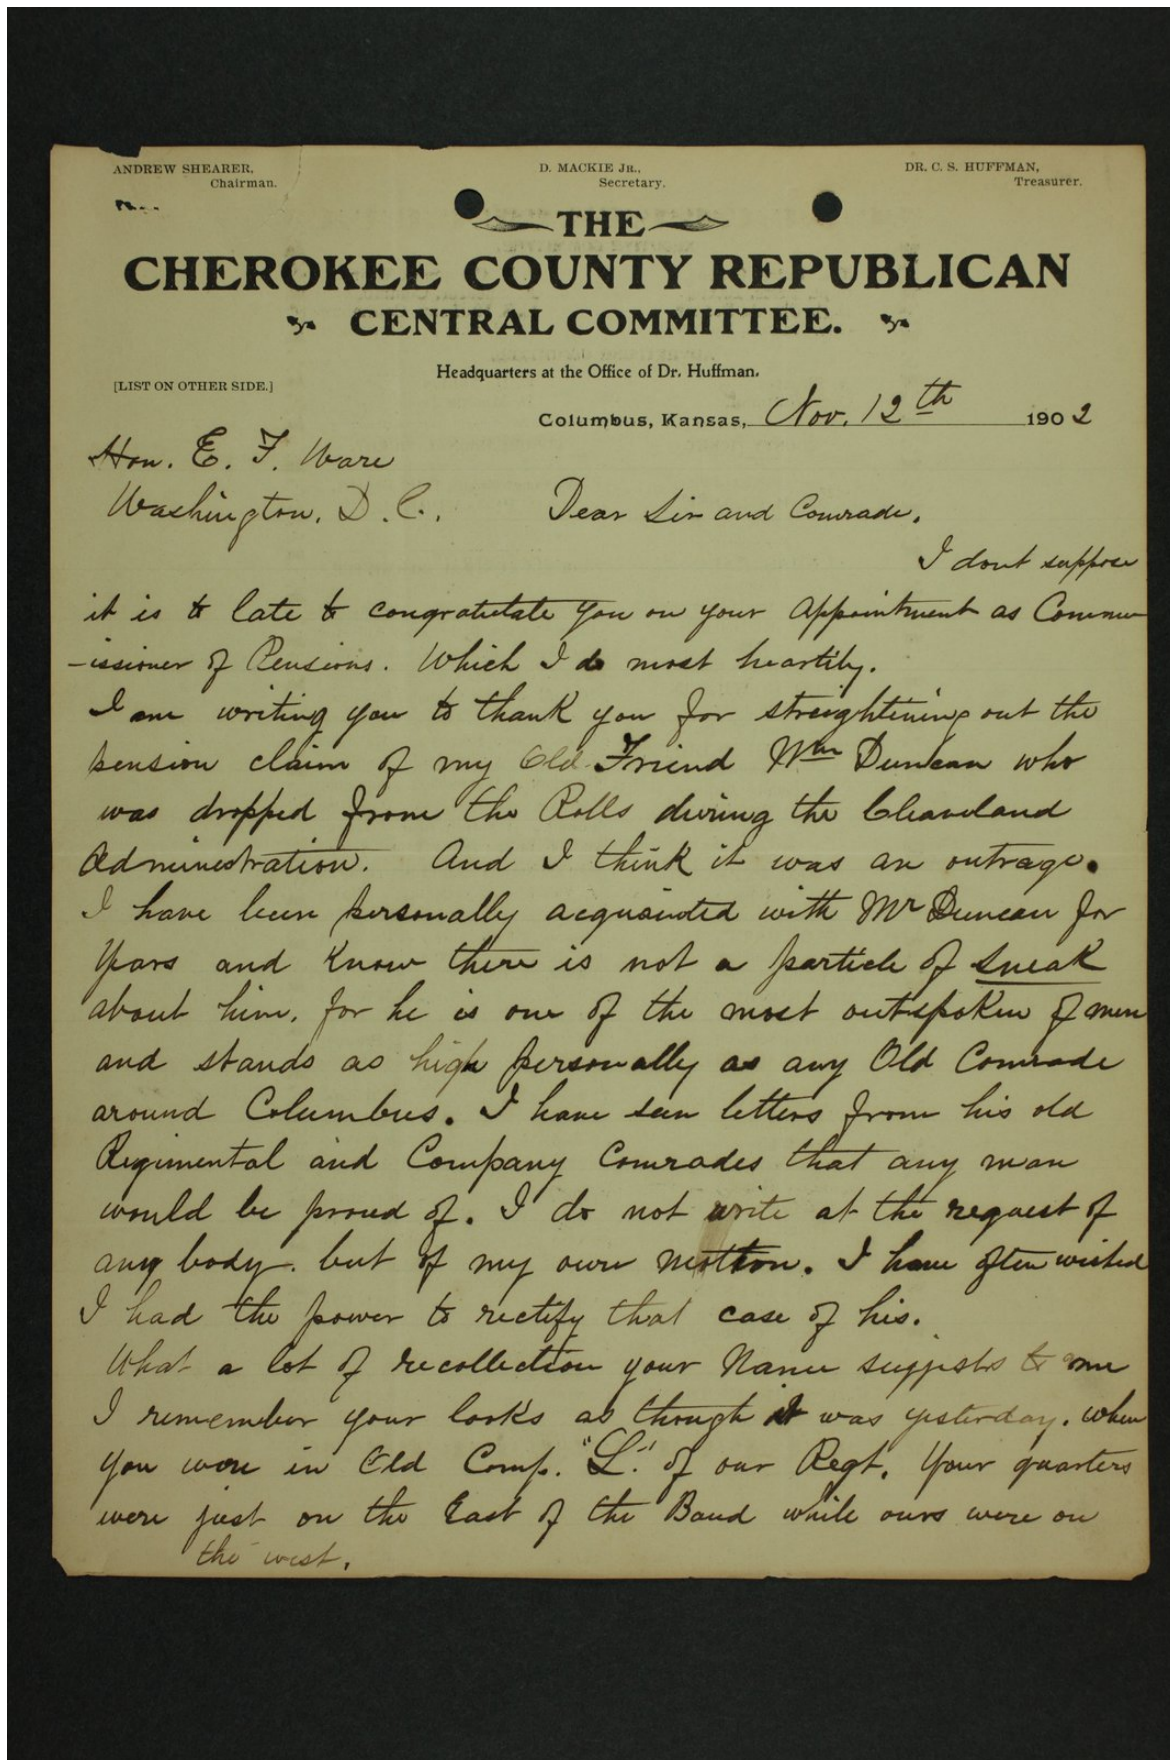 ANDREW SHEARER,
Chairman.
D. MACKIE JR.,
Secretary.
DR. C. S. HUFFMAN,
Treasurer.
THE
CHEROKEE COUNTY REPUBLICAN
CENTRAL COMMITTEE.
Headquarters at the Office of Dr. Huffman.
[LIST ON OTHER SIDE.]
Columbus, Kansas, Nov. 12th 1902
Hon. E. F. Ware
Washington. D. C.,
Dear Sir and Comrade.
I dont suppose
it is to late to congratulate you on your Appointment as Comm
-issioner of Pensions. Which I do most heartily.
I am writing you to thank you for streightening out the
pension claim of my Old Friend Wm Duncan who
was dropped from the Rolls during the Cleaveland
Administration. And I think it was an outrage.
I have been personally acquainted with Mr Duncan for
Years and Know there is not a particle of sneak
about him. for he is one of the most outspoken of men
and stands as high personally as any Old Comrade
around Columbus. I have seen letters from his old
Regimental and Company Comrades that any man
would be proud of. I do not write at the request of
any body. but of my own motion. I have often wished
I had the power to rectify that case of his.
What a lot of recollection your Name suggests to me
I remember your looks as though it was yesterday. when
you were in Old Comp. "L." of our Regt. Your quarters
were just on the East of the Band while ours were on
the west.